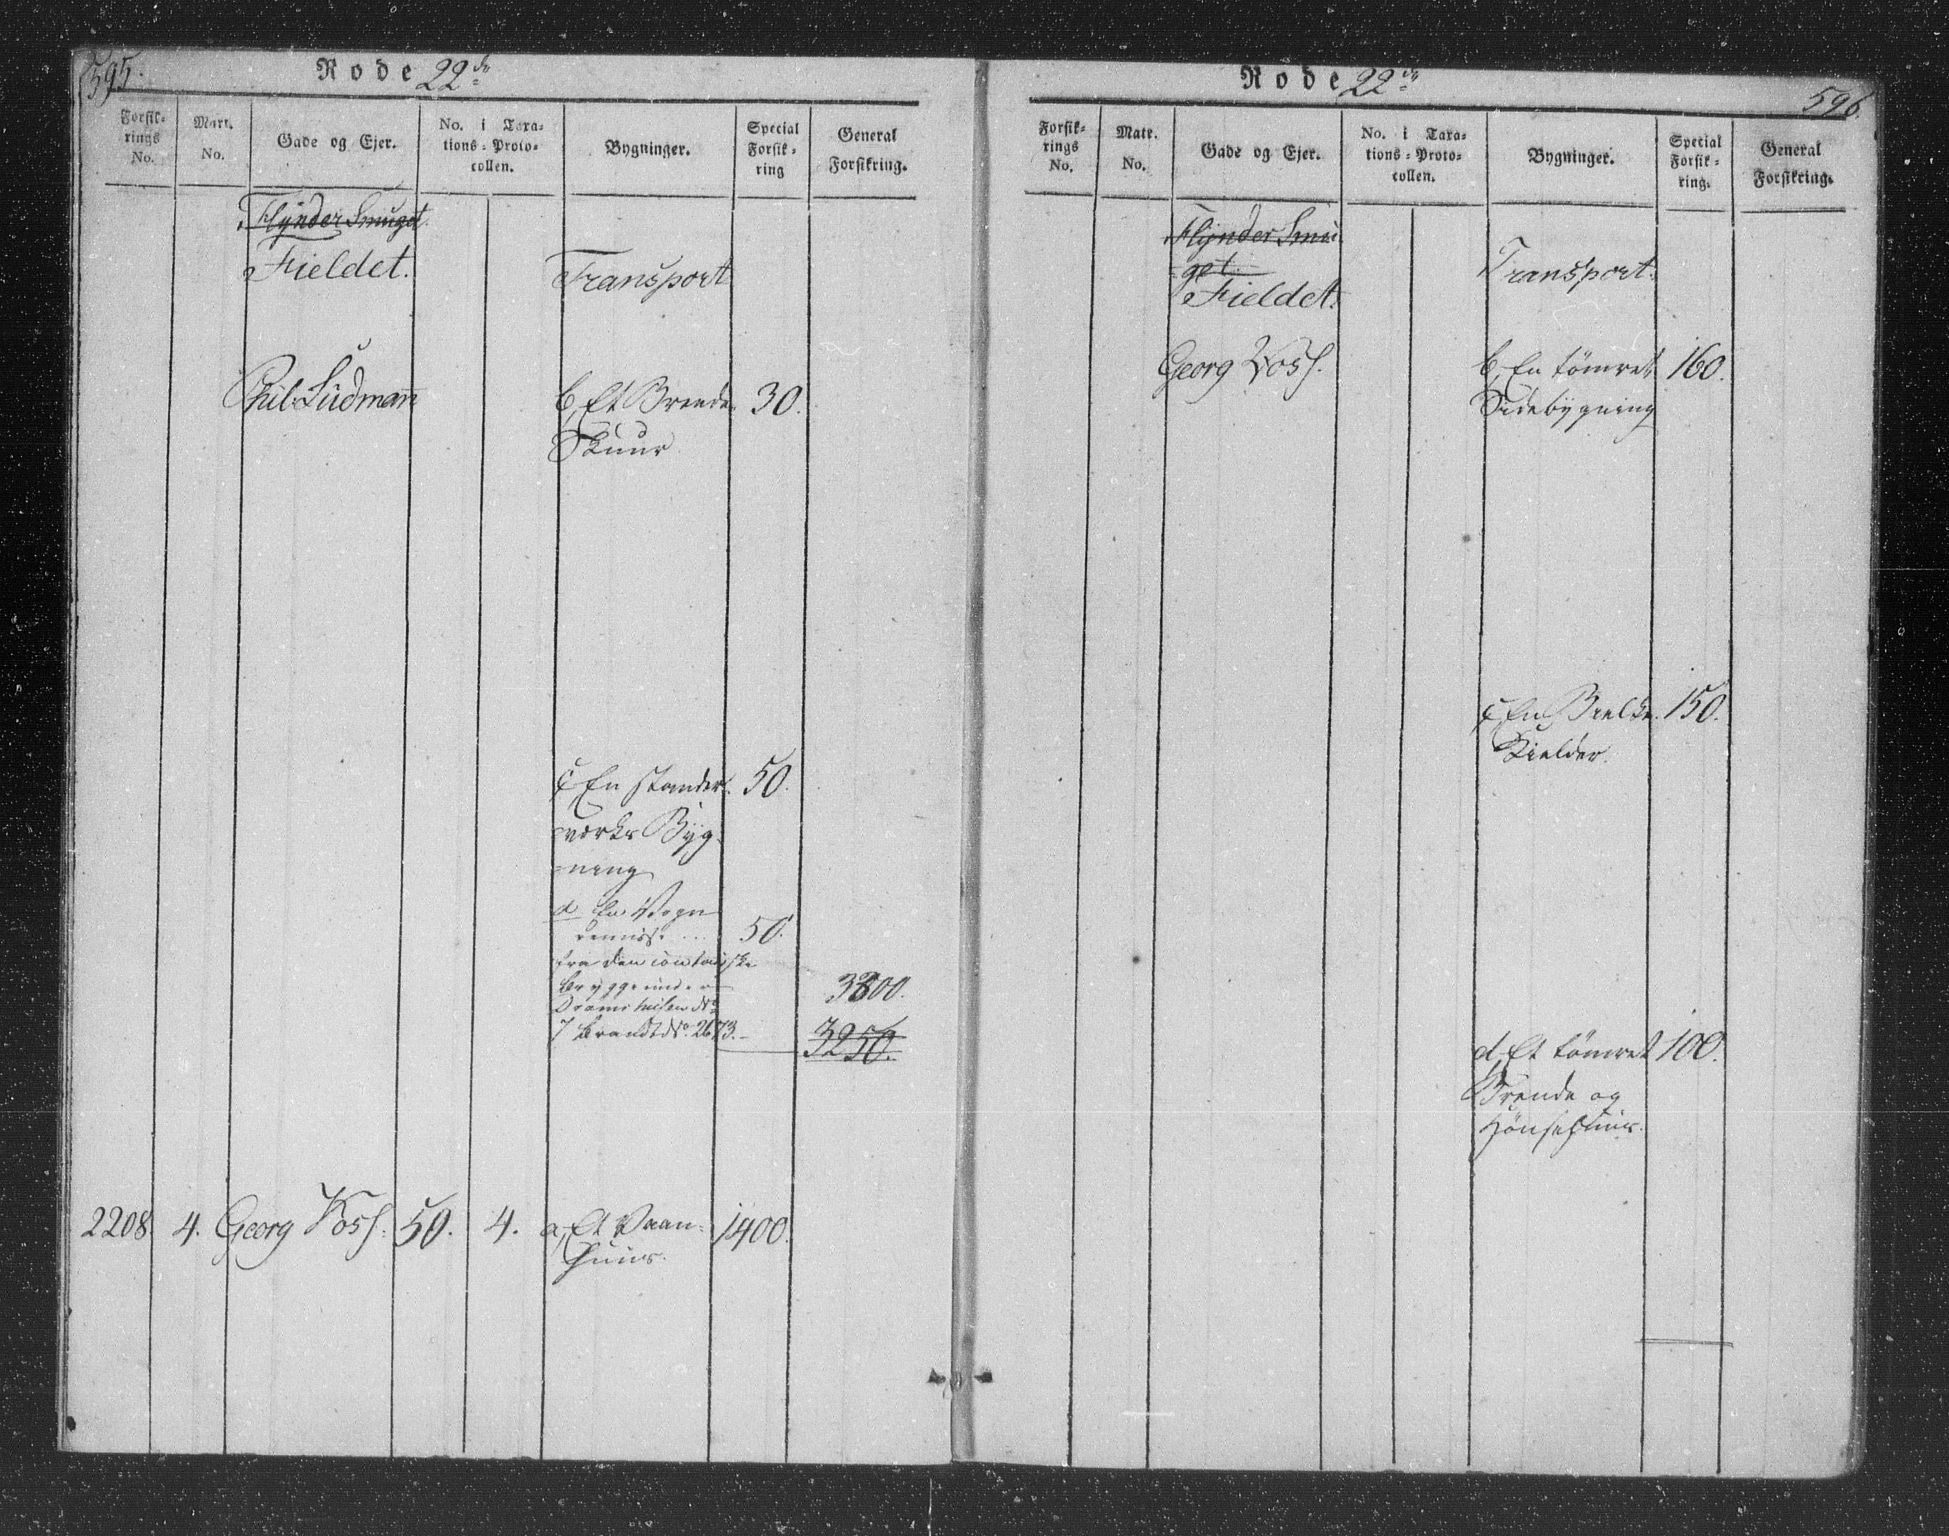 595.
Rode 22de
Forsik-
rings
No.
Matr.
No.
Gade og Ejer.
No. i Taxa-
tions-Proto-
collen.
Bygninger.
Special
Forsik-
ring
General
Forsikring.
Flÿnder Smuget
Fieldet.
Transport
Phil: Lüdmann
b, Et Brende
Skuur
30.
c, En stander
værks Byg-
ning
50.
d En Vogn
remisse ...
50.
fra den
7 Brandt No. 2673.
3800.
3250.
2208
4.
Georg Voss.
50.
4.
a, Et Vaan-
huus.
1400.
Rode 22de
596.
Forsik-
rings
No.
Matr.
No.
Gade og Ejer.
No. i Taxa-
tions-Proto-
collen.
Bygninger.
Special
Forsik-
ring.
General
Forsikring.
Flÿnder Smu
get
Fieldet.
Transport.
Georg Voss.
b, En tömret
Sidebygning
160.
c, En Bielke
Kielder.
150.
d, Et tömret
Brende og
Hönsehuus.
100.